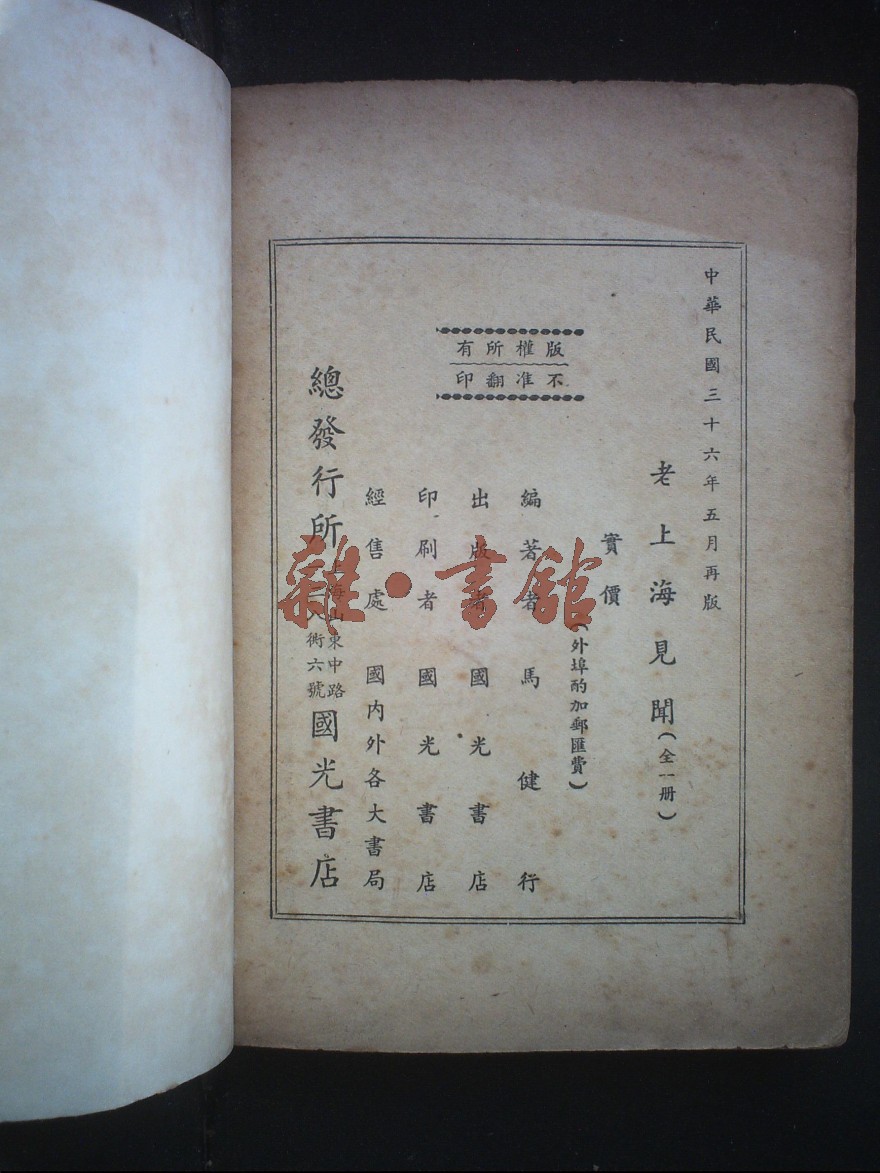 中華民國三十六年五月再版
老上海見聞(全一册)
實價
(外埠酌加郵匯費)
版權所有
不准翻印
編著者 馬健行
出版者 國光書店
印刷者 國光書店
經售處 國內外各大書局
總發行所
上海山東中路
衖六號
國光書店
雜·書館